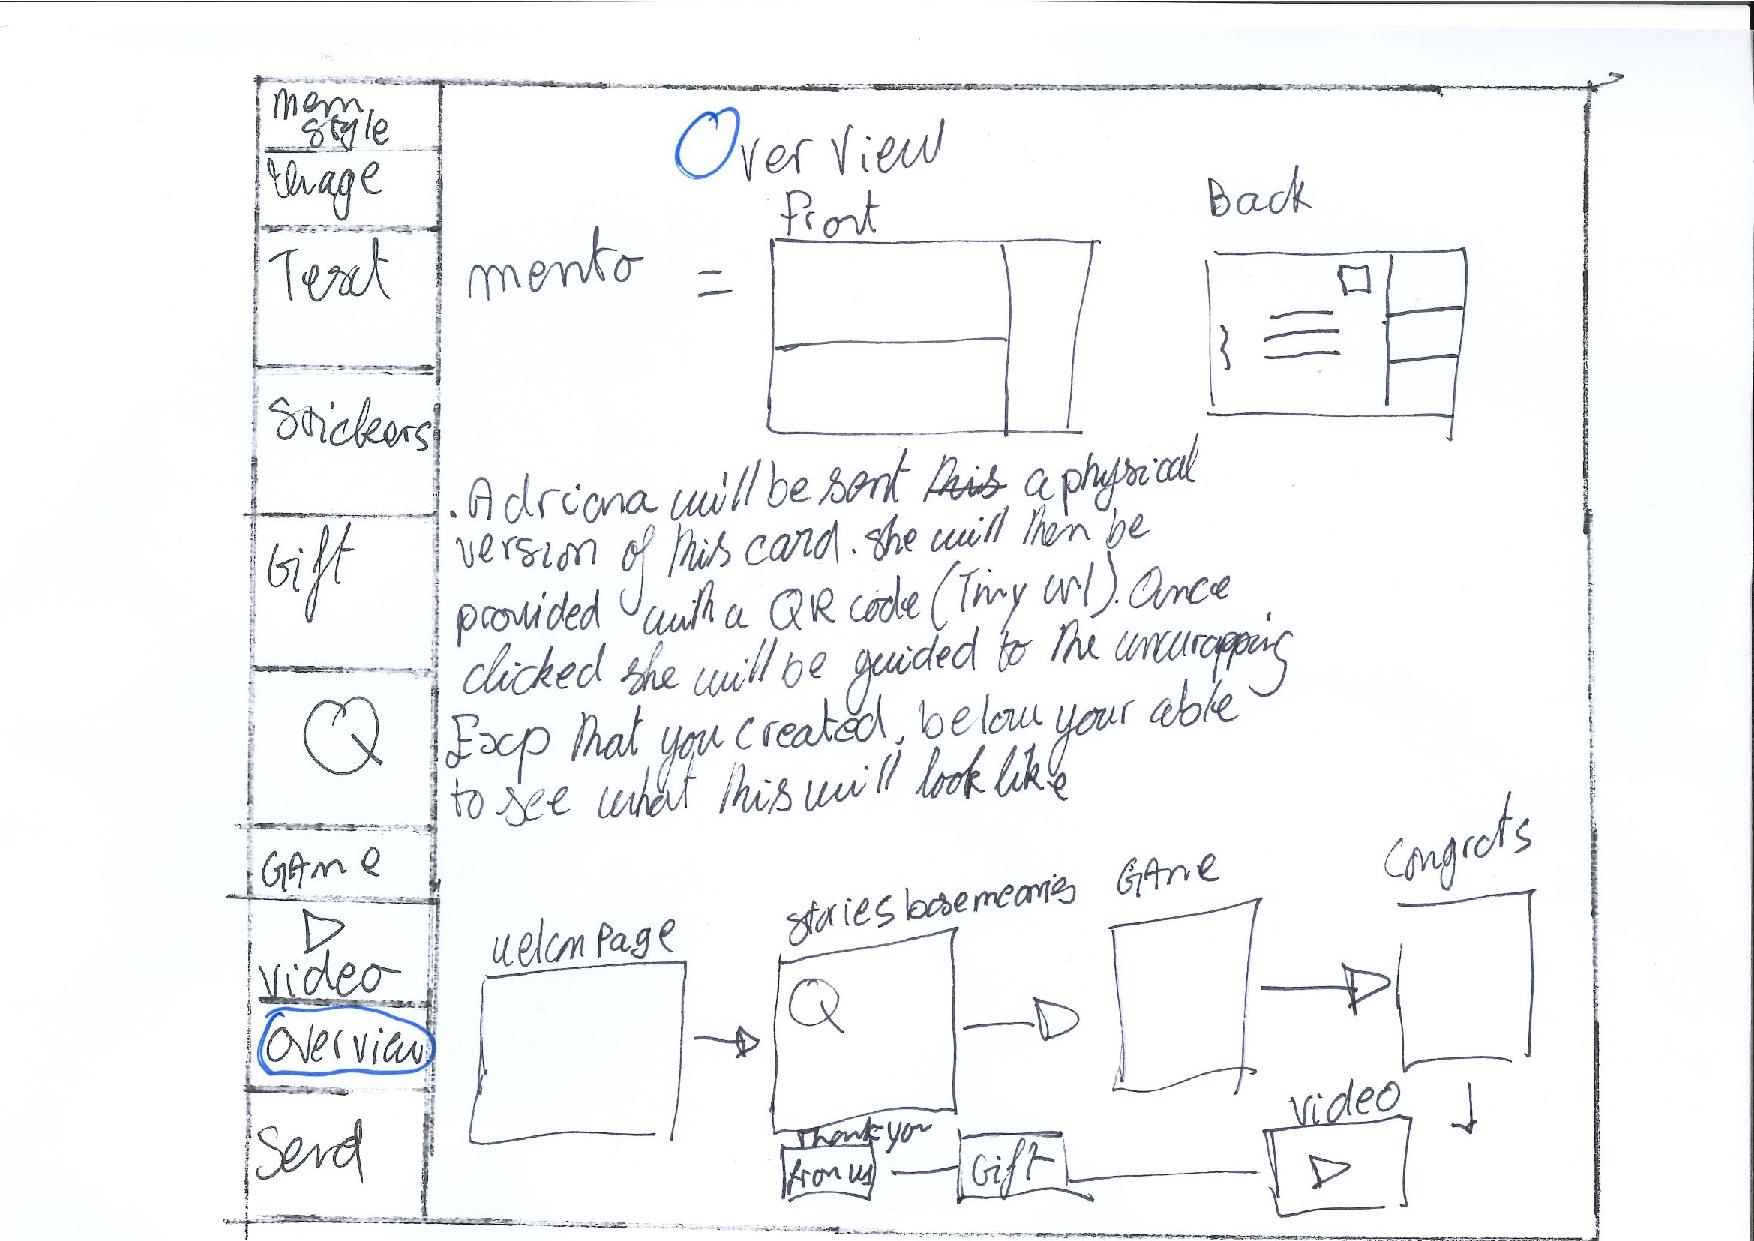 mem
style
Image
Text
Stickers
Gift
Q
GAme
video
Overview
Send
Overview
front
Back
mento =
. Adriana will be sent this a physical
version of this card. she will then be
provided with a QR code (Tiny url). Once
clicked she will be guided to the unwrapping
Exp that you created, below your able
to see what this will look like
welcm Page
stories base
GAme
Congrats
Q
video
thank you
from us
Gift